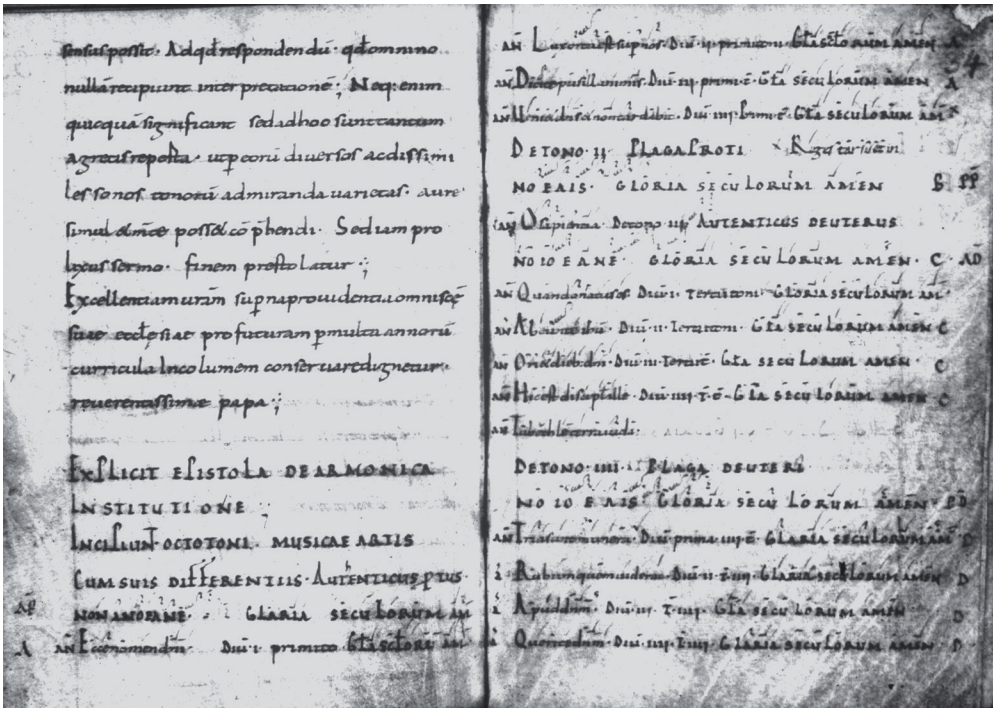 sensus possit. Ad qd respondendū. qd omnino
nullā recipiunt interpretationē; Neq; enim
quicquā significant sed ad hoc sunt tantum
a grecis reperta. ut p eorū diversos ac dissimi
les sonos tonorū admiranda varietas. aure
simul & mte posset cōp̄hendi. Sed iam pro
lixus sermo. finem prestolatur;
Excellentiam uram sup̄na providentia omnis
suae ecclesiae profuturam p multa annorū
curricula Incolumem conservare dignetur.
reverentissime papa;
EXPLICIT EPISTOLA DE ARMONICA
INSTITUTIONE
INCIPIUNT OCTO TONI. MUSICAE ARTIS
CUM SUIS DIFFERENTIIS. AUTENTICUS PTUS
NONANOEANE. GLARIA SECULORUM AM
A AN Ecce nomen dni. Diui. i. primi to Gła sclorū am
AN Diui. ii. primi toni. Gła sclorum AMEN A
AN Dicite pusillanimis. Diui. iii. primi t. Gła SECULORUM AMEN A
AN Diui. iiii. Primi t. Gła SECULORUM AM
DE TONO. II. PLAGA PROTI
NOEAIS. GLORIA SECULORUM AMEN B PP
AN O sapientia. De tono. iii. AUTENTICUS DEUTERUS
NOIOEANE. GLORIA SECULORUM AMEN. C AD
AN Quando natus es. Diui. i. Tertii toni. GLORIA SECULORUM AM
AN Diui. ii. Tertii toni. Gła SECULORUM AMEN C
AN Diui. iii. Tertii t. Gła SECULORUM AMEN. C
AN Hic est discipulus ille. Diui. iiii. T. t. Gła SECULORUM AMEN C
AN
DE TONO. IIII. PLAGA DEUTERI
NOIOEAIS. GLORIA SECULORUM AMEN. PD
AN Diui. prima. iiii. t. Gloria SECULORUM AM D
Rubum quem viderat. Diui. ii. t. iiii. Gloria SECULORUM AMEN D
Apud dnm. Diui. iii. T. iiii. Gła SECULORUM AMEN D
Diui. iiii. T. iiii. GLARIA SECULORUM AMEN D